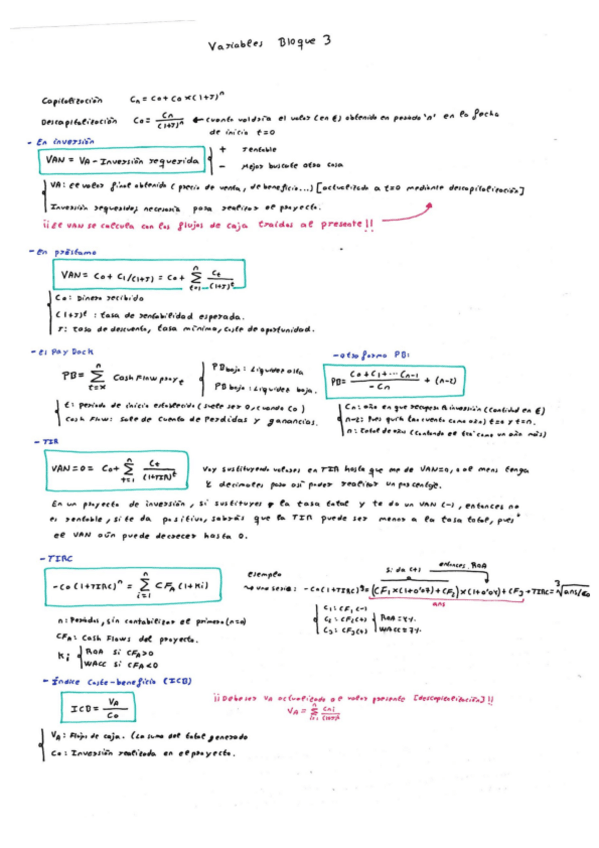 Variables Bloque 3
Capitalización Cn = Co + Co x (1+r)^n
Descapitalización Co = Cn/(1+r)^n ← Cuanto valdría el valor (en €) obtenido en periodo 'n' en la fecha
de inicio t=0
- En inversión
VAN = VA - Inversión requerida
+ rentable
- Mejor buscate otra cosa
VA: es valor final obtenido (precio de venta, de beneficio...) [actualizado a t=0 mediante descapitalización]
Inversión requerida; necesaria para realizar el proyecto.
¡¡ El VAN se calcula con los flujos de caja traídos al presente !!
- En préstamo
VAN = Co + C1/(1+r) = Co + Σ Ct/(1+r)^t
Co: Dinero recibido
(1+r)^t : tasa de rentabilidad esperada.
r: tasa de descuento, tasa mínima, coste de oportunidad.
- El Pay Back
PB = Σ Cash Flow proy t
PB bajo: Liquidez alta
PB bajo: Liquidez baja.
t: periodo de inicio establecido (suele ser 0, cuando Co)
Cash Flow: sale de Cuenta de Perdidas y ganancias.
- otra forma PB:
PB = Co+C1+...Cn-1/-Cn + (n-2)
Cn: año en que recupera la inversión (Cantidad en €)
n: total de años (Contando el 'tro' como un año más)
- TIR
VAN = 0 = Co + Σ Ct/(1+TIR)^t
Voy sustituyendo valores en TIR hasta que me de VAN=0, o al menos tenga
decimales para así poder realizar un porcentaje.
En un proyecto de inversión, si sustituyes r la tasa total y te da un VAN (-), entonces no
es rentable, si te da positivo, sabrás que la TIR puede ser menor a la tasa total, pues
el VAN aún puede decrecer hasta 0.
- TIRC
-Co (1+TIRC)^n = Σ CFA (1+Ki)
ejemplo
si da (+) entonces ROA
una seria: -Co(1+TIRC)^3 = (CF1 x (1+0'07) + CF2) x (1+0'04) + CF3 → TIRC = ∛ans/Co
ans
n: Periodos, sin contabilizar el primero (n=0)
CFA: Cash Flows del proyecto.
Ki { ROA si CFA>0
WACC si CFA<0
C1: CF1 (-)
C2: CF2 (+)
C3: CF3 (+)
ROA = 4%.
WACC = 7%.
- Índice Coste-beneficio (ICB)
ICB = VA/Co
¡¡ Debe ser VA actualizado al valor presente [descapitalización] !!
VA = Σ Cn/(1+r)^n
VA: Flujo de caja. (La suma del total generado
Co: Inversión realizada en el proyecto.